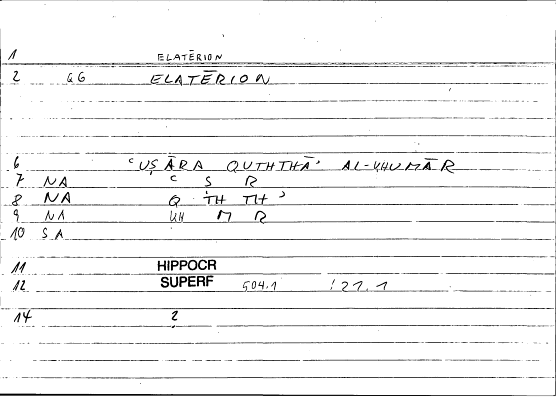 1 ELATĒRION
2 GG ELATĒRION
6 ʿUṢĀRA QUTHTHĀʾ AL-ḤUMĀR
7 NA ʿ Ṣ R
8 NA Q TH TH ʾ
9 NA Ḥ M R
10 SA
11 HIPPOCR
12 SUPERF 504.1 127.1
14 2